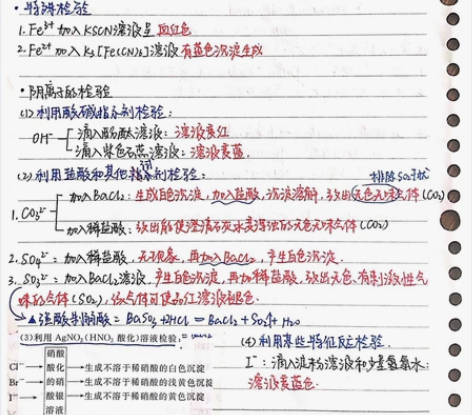 ·特殊检验
1. Fe³⁺ 加入KSCN溶液呈 血红色
2. Fe²⁺ 加入 K₃[Fe(CN)₆]溶液 有蓝色沉淀生成
·阴离子的检验
(1) 利用酸碱指示剂检验:
OH⁻
滴入酚酞溶液: 溶液变红
滴入紫色石蕊溶液: 溶液变蓝.
(2) 利用盐酸和其他试剂检验:
排除SO₂干扰
1. CO₃²⁻
加入BaCl₂: 生成白色沉淀, 加入盐酸, 沉淀溶解, 放出无色无味气体 (CO₂)
加入稀盐酸: 放出能使澄清石灰水变浑浊的无色无味气体 (CO₂)
2. SO₄²⁻: 加入稀盐酸, 无现象, 再加入BaCl₂, 产生白色沉淀.
3. SO₃²⁻: 加入BaCl₂溶液, 产生白色沉淀, 再加稀盐酸, 放出无色、有刺激性气
味的气体 (SO₂), 该气体可使品红溶液褪色.
▲强酸制弱酸: BaSO₃+2HCl=BaCl₂+SO₂↑+H₂O
(3)利用 AgNO₃(HNO₃ 酸化)溶液检验:
Cl⁻ Br⁻ I⁻
硝酸酸化的硝酸银溶液
生成不溶于稀硝酸的白色沉淀
生成不溶于稀硝酸的浅黄色沉淀
生成不溶于稀硝酸的黄色沉淀
(4) 利用某些特征反应检验.
I⁻: 滴入淀粉溶液和少量氯水:
溶液变蓝色.